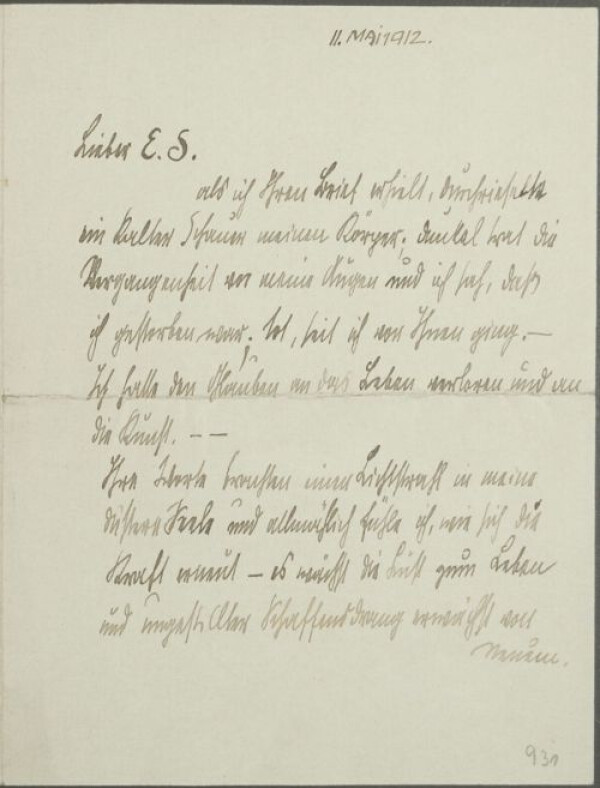 11. MAI 1912.
Lieber E. S.
als ich Ihren Brief erhielt, durchrieselte
ein kalter Schauer meinen Körper; dunkel trat die
Vergangenheit vor meine Augen und ich sah, daß
ich gestorben war; tot, seit ich von Ihnen ging. —
Ich hatte den Glauben an das Leben verloren und an
die Kunst. — —
Ihre Worte brachten einen Lichtstrahl in meine
düstere Seele und allmählich fühle ich, wie sich die
Kraft erneut — es wächst die Lust zum Leben
und Schaffensdrang erwächst von
Neuem.
931